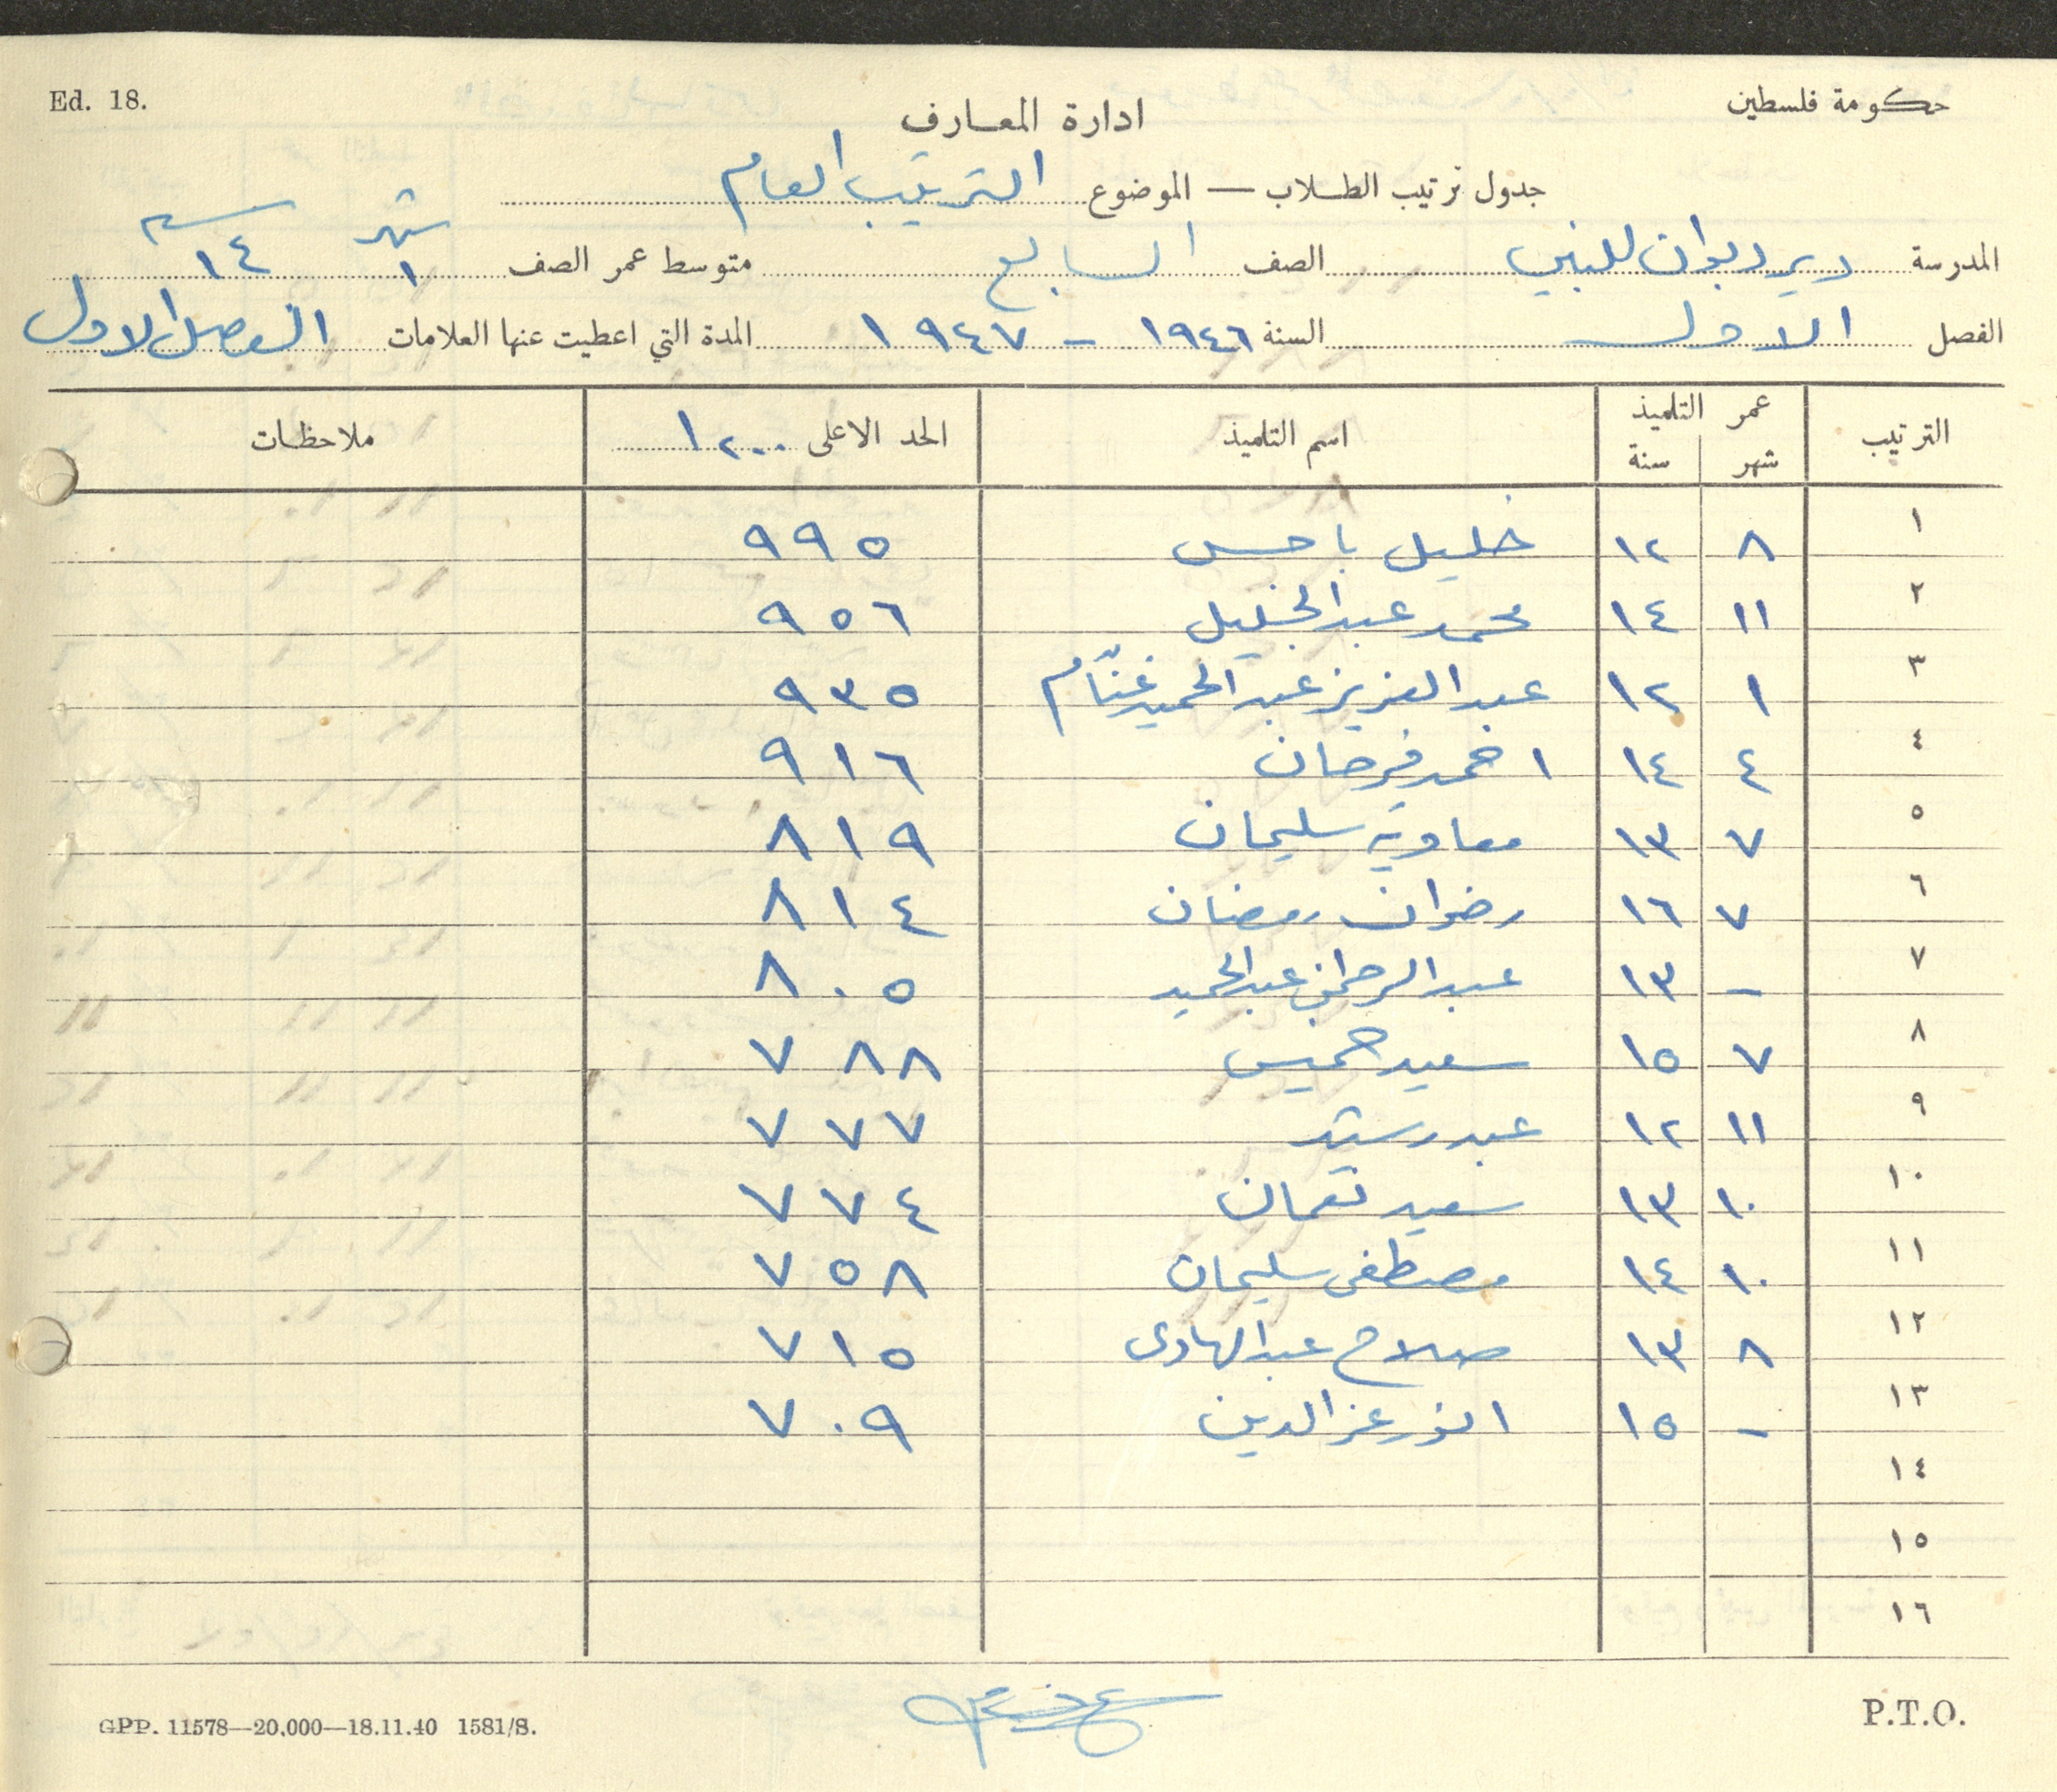 Ed. 18.
حكومة فلسطين
ادارة المعارف
جدول ترتيب الطلاب — الموضوع الترتيب العام
المدرسة دير ديوان للبنين الصف السابع متوسط عمر الصف شهر ١ سنه ١٤
الفصل الاول السنة ١٩٤٦ - ١٩٤٧ المدة التي اعطيت عنها العلامات الفصل الاول
الترتيب عمر التلميذ شهر سنة اسم التلميذ الحد الاعلى ١٢٠٠ ملاحظات
١ ٨ ١٢ خليل باجس ٩٩٥
٢ ١١ ١٤ محمد عبد الجليل ٩٥٦
٣ ١ ١٢ عبد العزيز عبد الحميد غنّام ٩٣٥
٤ ٤ ١٤ احمد فرحان ٩١٦
٥ ٧ ١٣ معاويه سليمان ٨١٩
٦ ٧ ١٦ رضوان رمضان ٨١٤
٧ - ١٣ عبد الرحمن عبد الحميد ٨٠٥
٨ ٧ ١٥ سعيد خميس ٧٨٨
٩ ١١ ١٢ عبد رشيد ٧٧٧
١٠ ١٠ ١٣ سعيد نعمان ٧٧٤
١١ ١٠ ١٤ مصطفى سليمان ٧٥٨
١٢ ٨ ١٣ صلاح عبد الهادى ٧١٥
١٣ - ١٥ انور عز الدين ٧٠٩
١٤
١٥
١٦
GPP. 11578—20,000—18.11.40 1581/S.
P.T.O.